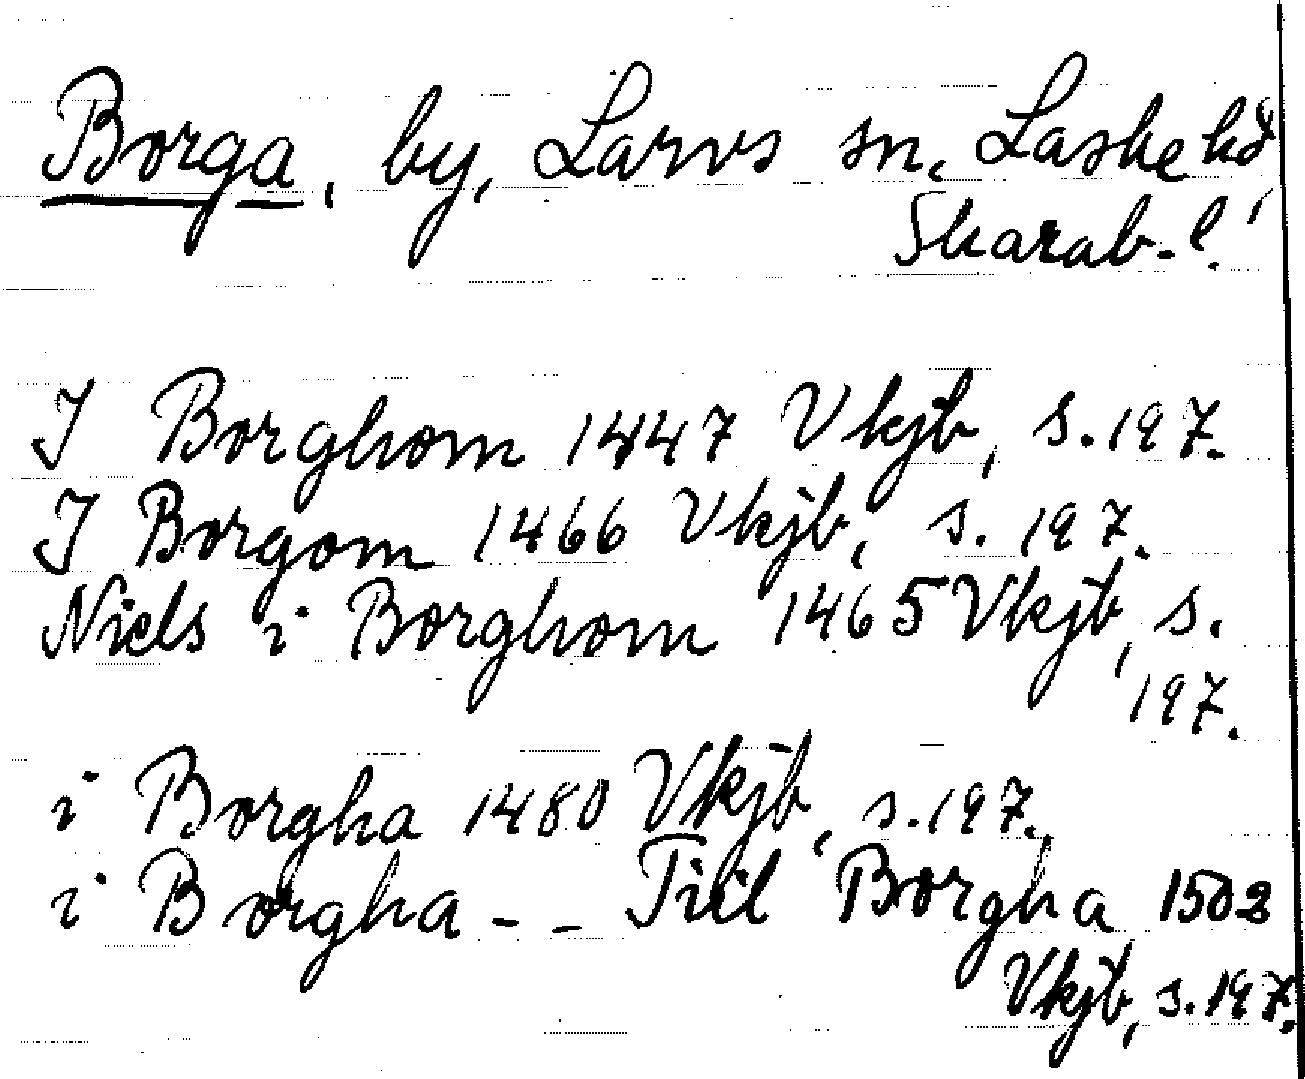 Borga, by, Larvs sn, Laske hd,
Skarab. l.
I Borghom 1447 Vkjb, s. 197.
I Borgom 1466 Vkjb, s. 197.
Niels i Borghom 1465 Vkjb, s.
197.
i Borgha 1480 Vkjb, s. 197.
i Borgha - - Tiil Borgha 1502
Vkjb, s. 197.